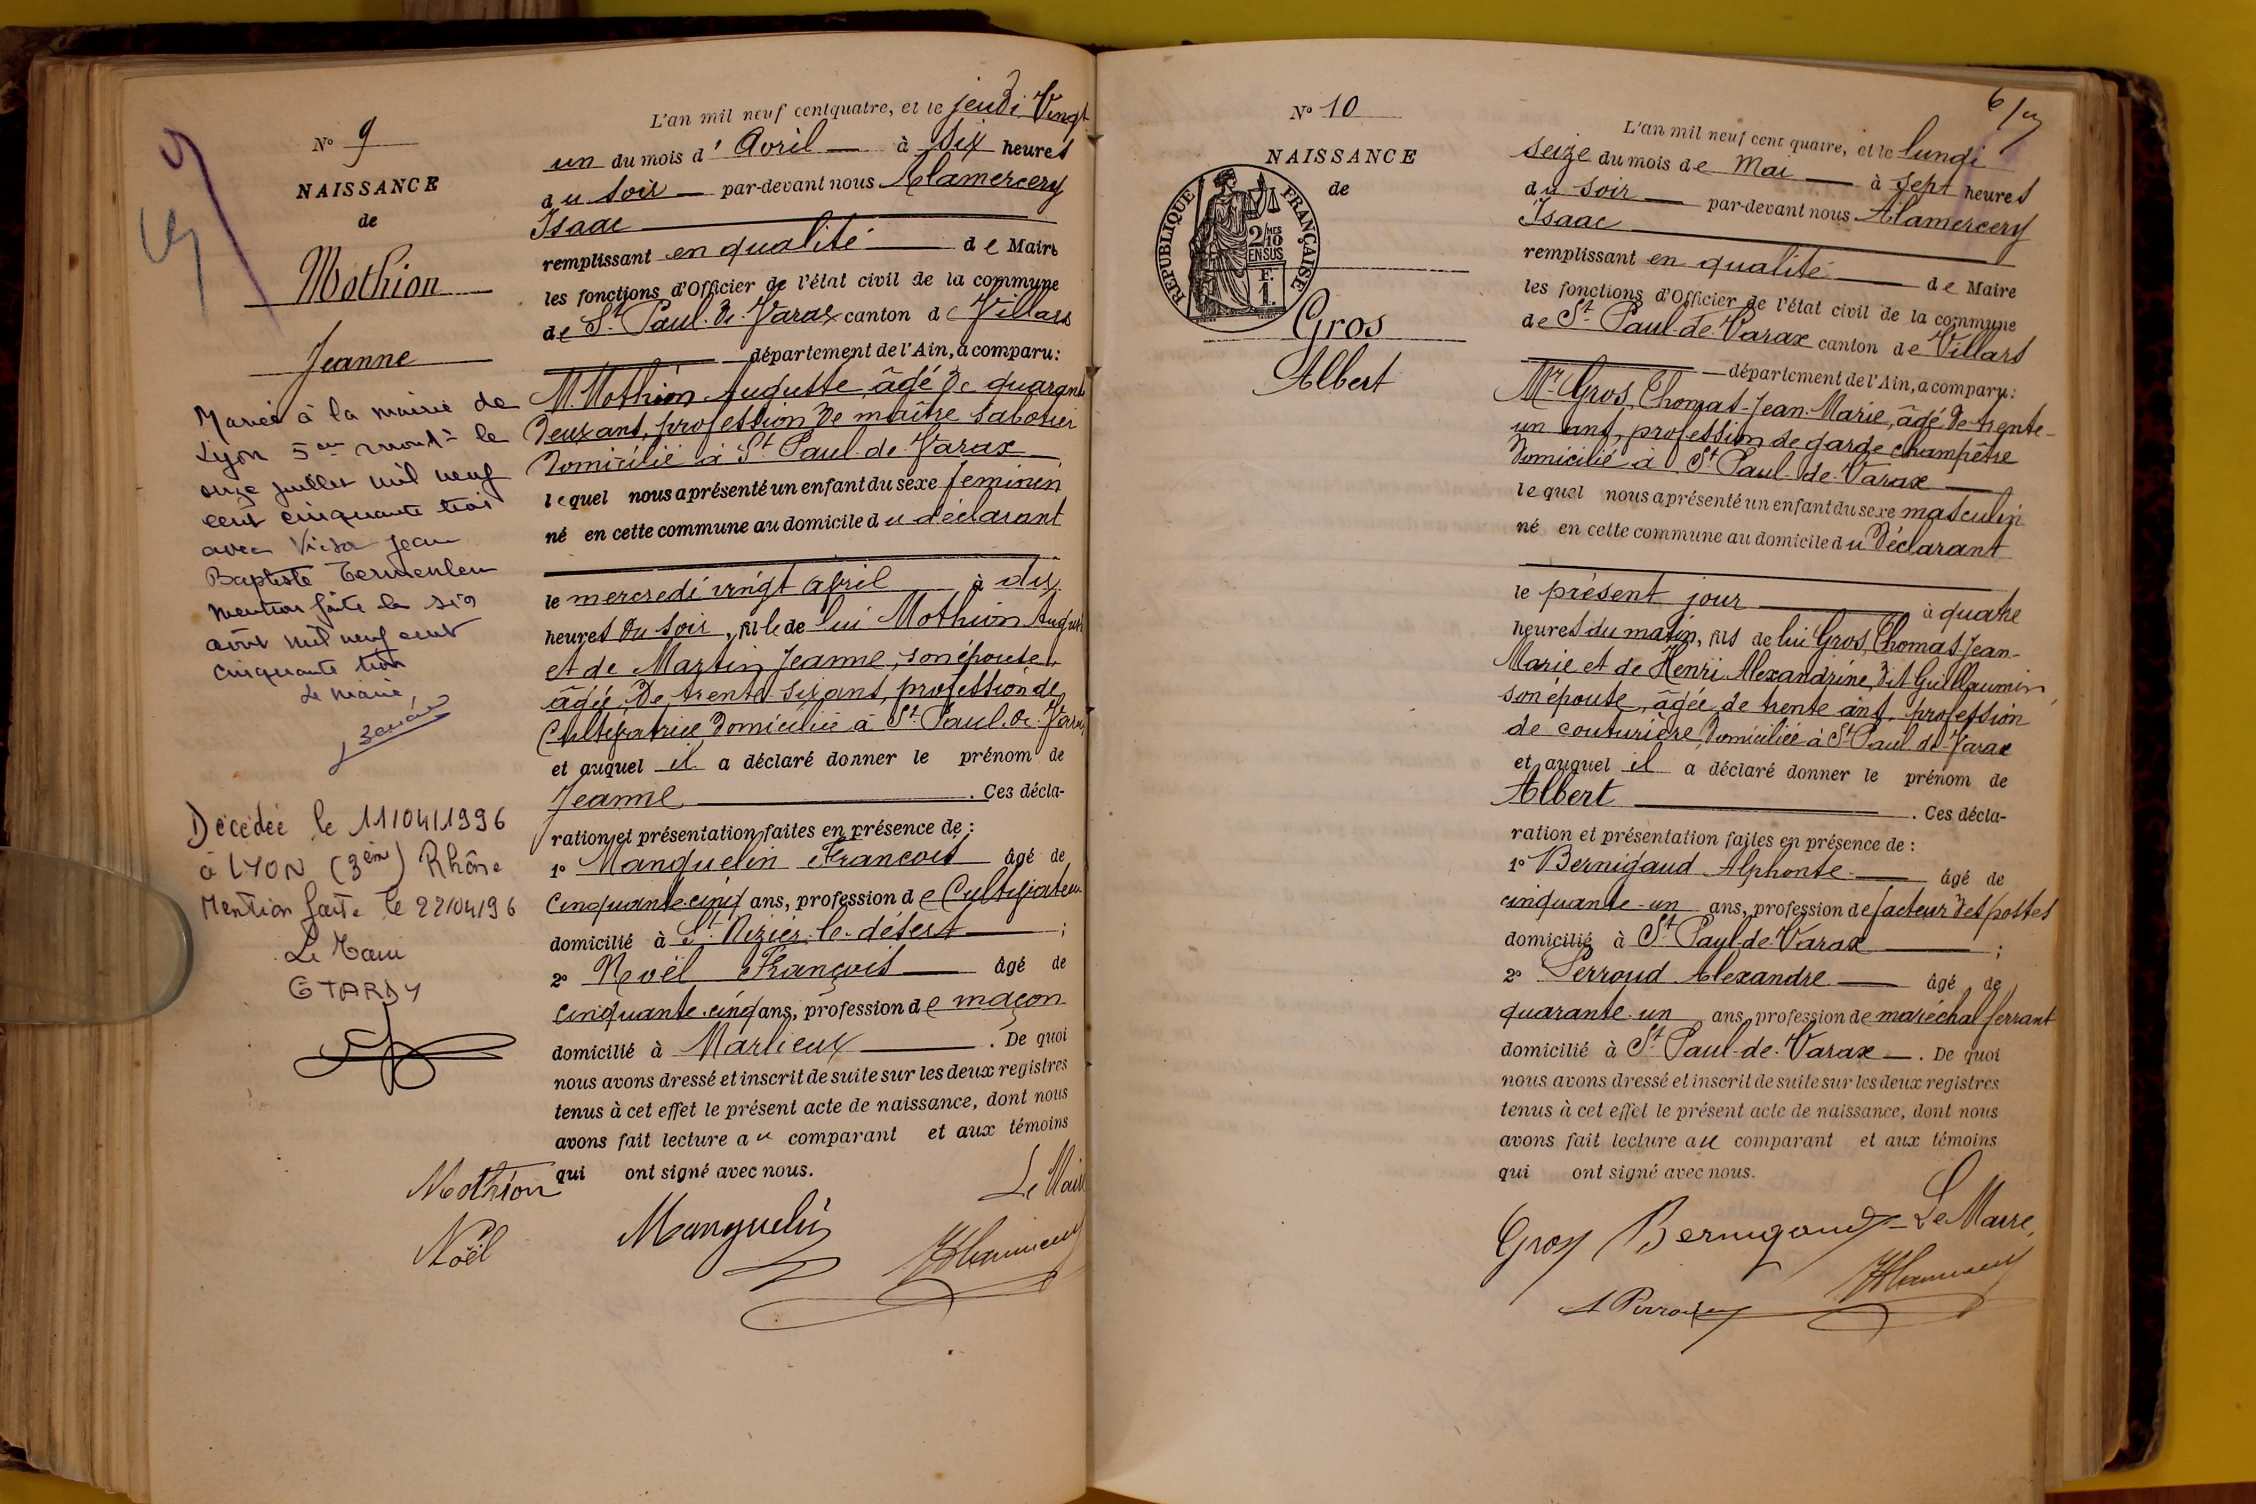 N° 9
NAISSANCE
de
Mothion
Jeanne
Mariée à la mairie de
Lyon 5em arrondt le
onze juillet mil neuf
cent cinquante trois
avec Victor Jean
Baptiste
mention faite le six
août mil neuf cent
cinquante trois
Le maire,
Décédée le 11/04/1996
à LYON (3ème) Rhône
Mention faite le 22/04/96
Le Maire
G TARDY
L'an mil neuf cent quatre, et le jeudi Vingt
un du mois d' Avril à six heures
du soir par-devant nous Alamercery
Isaac
remplissant en qualité de Maire
les fonctions d'Officier de l'état civil de la commune
de St Paul-de-Varax canton de Villars
département de l'Ain, a comparu:
M. Mothion Auguste, âgé de quarante
deux ans, profession de maître sabotier
domicilié à St Paul-de-Varax
lequel nous a présenté un enfant du sexe féminin
né en cette commune au domicile du déclarant
le mercredi vingt avril à dix
heures du soir, fille de lui Mothion Auguste
et de Martin Jeanne, son épouse,
âgée de trente six ans, profession de
Cultivatrice domiciliée à St Paul-de-Varax
et auquel il a déclaré donner le prénom de
Jeanne. Ces décla-
ration et présentation faites en présence de :
1° Manguelin François âgé de
cinquante-cinq ans, profession de Cultivateur
domicilié à St Nizier-le-désert ;
2° Noël François âgé de
cinquante-cinq ans, profession de maçon
domicilié à Marlieux. De quoi
nous avons dressé et inscrit de suite sur les deux registres
tenus à cet effet le présent acte de naissance, dont nous
avons fait lecture au comparant et aux témoins
qui ont signé avec nous.
Mothion Le Maire
Noël Manguelin
6
N° 10
NAISSANCE
de
RÉPUBLIQUE FRANÇAISE
2/10MES
EN SUS
F.
1.
Gros
Albert
L'an mil neuf cent quatre, et le lundi
seize du mois de Mai à sept heures
du soir par-devant nous Alamercery
Isaac
remplissant en qualité de Maire
les fonctions d'Officier de l'état civil de la commune
de St Paul-de-Varax canton de Villars
département de l'Ain, a comparu:
Mr Gros, Thomas-Jean-Marie, âgé de trente-
un ans, profession de garde champêtre
domicilié à St Paul-de-Varax
lequel nous a présenté un enfant du sexe masculin
né en cette commune au domicile du déclarant
le présent jour à quatre
heures du matin, fils de lui Gros, Thomas-Jean-
Marie et de Henri Alexandrine, dit Guillaumin
son épouse, âgée de trente ans, profession
de couturière, domiciliée à St Paul-de-Varax
et auquel il a déclaré donner le prénom de
Albert. Ces décla-
ration et présentation faites en présence de :
1° Bernigaud Alphonse âgé de
cinquante-un ans, profession de facteur des postes
domicilié à St Paul-de-Varax ;
2° Perroud Alexandre âgé de
quarante-un ans, profession de maréchal ferrant
domicilié à St Paul-de-Varax. De quoi
nous avons dressé et inscrit de suite sur les deux registres
tenus à cet effet le présent acte de naissance, dont nous
avons fait lecture au comparant et aux témoins
qui ont signé avec nous.
Gros Bernigaud Le Maire,
A Perroud